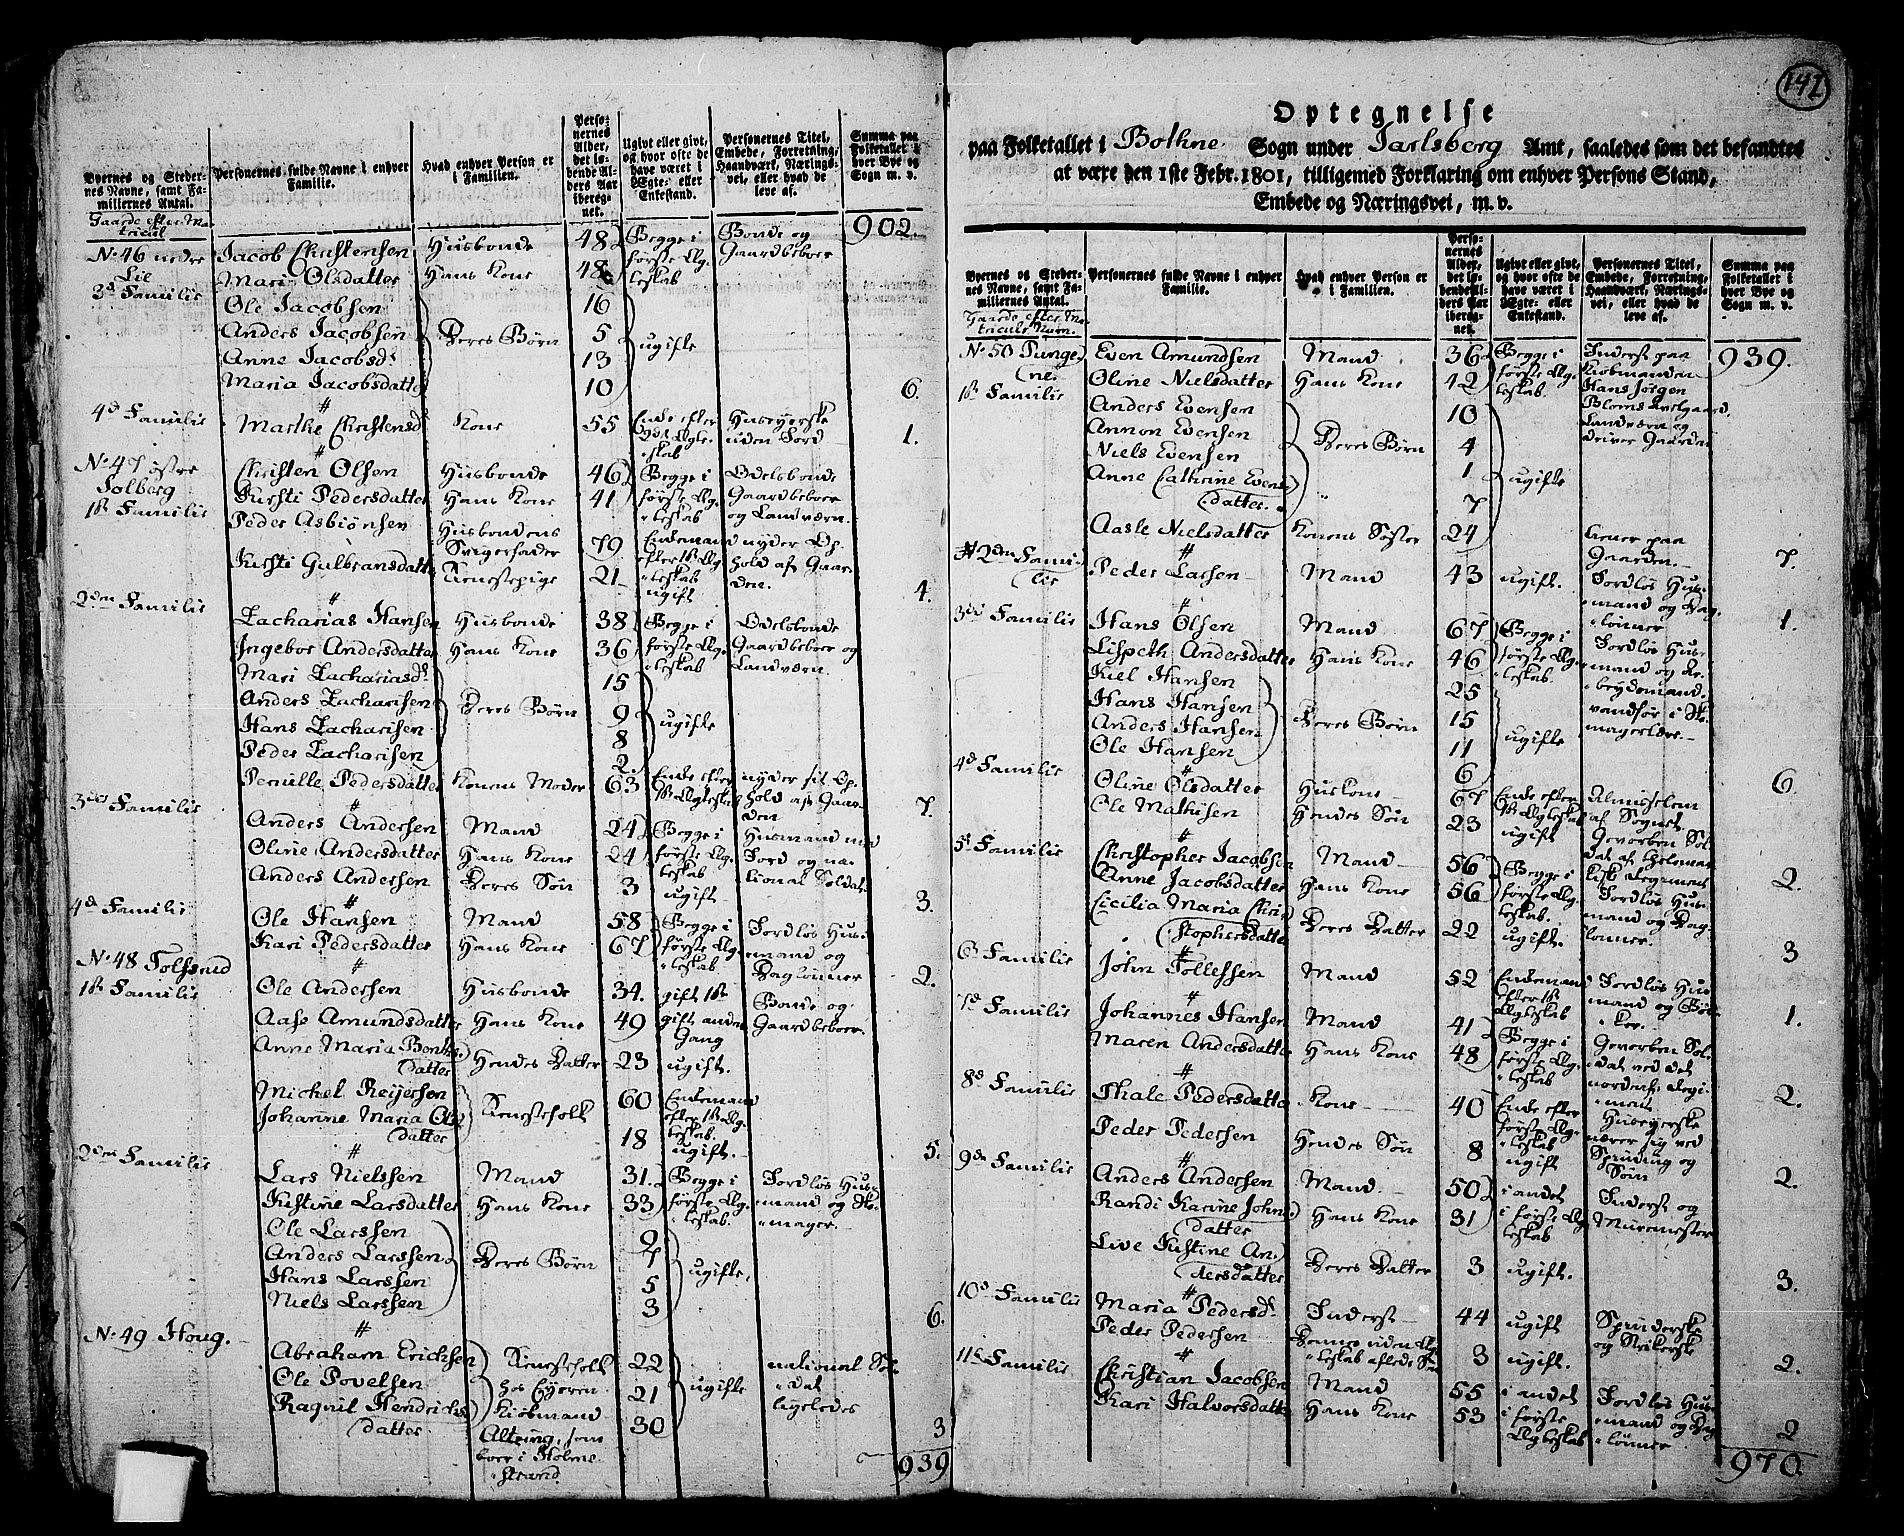 Byernes og Steder-
nes Navne, samt Fa-
milernes Antal.
Personernes fulde Navne i enhver
Familie.
Hvad enhver Person er
i Familien.
Perso-
nernes
Alder,
det lø-
bende Al-
ders Aar
ibereg-
net.
Ugivt eller givt,
og hvor ofte de
have været i
Ægte- eller
Enkestand.
Personernes Titel,
Embede, Forretning,
Haandværk, Nærings-
vei, eller hvad de
leve af.
Summa paa
Folketallet i
hver Bye og
Sogn m. v.
Gaarde efter Ma-
tricul
902.
No. 46 nedre Lie 3d Familie
Jacob Christensen Husbonde 48 Begge i første Ægteskab Bonde og Gaardbeboer
Mari Olsdatter Hans Kone 48
Ole Jacobsen 16
Anders Jacobsen Deres Børn 5 ugifte
Anne Jacobsd. 13
Maria Jacobsdatter 10 6.
4d Familie Marthe Christensd. Kone 55 Enke efter Ægteskab Huusejerske uden Jord 1.
No. 47 østre Solberg 1st Familie
Christen Olsen Husbonde 46 Begge i første Ægteskab Odelsbonde Gaardbeboer og Landværn.
Kirsti Pedersdatter Hans Kone 41
Peder Asbiönsen Husbondens Svigerfader 79 Enkemand efter 1st Ægteskab nyder Ophold af Gaarden.
Kirsti Gulbransdatter Tienestepige 21 ugift 4.
2den Familie
Zacharias Hansen Husbonde 38 Begge i første Ægteskab Odelsbonde Gaardbeboer og Landværn.
Ingebor Andersdatter Hans Kone 36
Mari Zachariasd. 15
Anders Zacharisen Deres Børn 9 ugifte
Hans Zacharisen 8
Peder Zacharisen 2.
Pernille Pedersdatter Konens Moder 63 Enke efter 1st Ægteskab nyder sit Ophold af Gaarden 7.
3die Familie
Anders Andersen Mand 24 Begge i første Ægteskab Husmand med Jord og national Soldat.
Oline Andersdatter Hans Kone 24
Anders Andersen Deres Søn 3 ugift 3.
4d Familie
Ole Hansen Mand 58 Begge i første Ægteskab Jordløs Husmand og Daglønner
Kari Pedersdatter Hans Kone 67 2.
No. 48 Tolfsrud 1st Familie
Ole Andersen Husbonde 34. gift 1st Bonde og Gaardbeboer.
Aase Amundsdatter Hans Kone 49 gift anden Gang
Anne Maria Bentsdatter Hendes Datter 23 ugift.
Michel Reijersen Tienestefolk 60 Enkemand efter 1st Ægteskab.
Johanne Maria Olsdatter 18 ugift. 5.
2den Familie
Lars Nielssen Mand 31. Begge i første Ægteskab. Jordløs Husmand og Skomager.
Kistine Larsdatter Hans Kone 33
Ole Larssen 9
Anders Larssen Deres Børn 7 ugifte.
Hans Larssen 5
Niels Larssen 3 6.
No. 49 Houg.
Abraham Erichsen Tienestefolk 22 ugifte national Soldat
Ole Povelsen hos Ejeren 21 ligeledes
Ragnil Hendrichsdatter Kiøbmand 30 3
Altring, som boer i Holmestrand.
939
142
Optegnelse
paa Folketallet i Bothne Sogn under Jarlsberg Amt, saaledes som det befandtes
at være den 1ste Febr. 1801, tilligemed Forklaring om enhver Persons Stand,
Embede og Næringsvei, m. v.
Byernes og Steder-
nes Navne, samt Fa-
milernes Antal.
Personernes fulde Navne i enhver
Familie.
Hvad enhver Person er
i Familien.
Perso-
nernes
Alder,
det lø-
bende Al-
ders Aar
ibereg-
net.
Ugivt eller givt,
og hvor ofte de
have været i
Ægte- eller
Enkestand.
Personernes Titel,
Embede, Forretning,
Haandværk, Nærings-
vei, eller hvad de
leve af.
Summa paa
Folketallet i
hver Bye og
Sogn m. v.
Gaarde efter Ma-
triculs Navn.
939.
No. 50 Pungerne 1st Familie
Even Amundsen Mand 36 Begge i første Ægteskab. Inderst paa Kiöbmanden Hans Jørgen Bloms Avlsgaard, Landværn og driver Gaarden
Oline Nielsdatter Hans Kone 42
Anders Evensen 10
Annon Evensen Deres Børn 4
Niels Evensen 1 ugifte
Anne Cathrine Evensdatter 7
Aasle Nielsdatter Konens Søster 24 tiener paa Gaarden. 7.
2den Familie
Peder Larsen Mand 43 ugift. Jordløs Husmand og Daglønner 1.
3die Familie
Hans Olsen Mand 67 Begge i første Ægteskab. Jordløs Husmand og Arbeydsmand.
Lispeth Andersdatter Hans Kone 46
Kiel Hansen 25 vandfør i Skomagerlære.
Hans Hansen Deres Børn 15 ugifte
Anders Hansen 11
Ole Hansen 6 6.
4d Familie
Oline Olsdatter Huskone 67 Enke efter 1st Ægteskab Almisselem af Sognet
Ole Mathisen Hendes Søn 23 ugift Gevorben Soldat af Regiment 2.
5t Familie
Christopher Jacobsen Mand 56 Begge i første Ægteskab. Jordløs Husmand og Daglønner.
Anne Jacobsdatter Hans Kone 56
Cicilia Maria Christophersdatter Deres Datter 22 ugift. 3
6t Familie
John Tollefsen Mand 52 Enkemand efter 1st Ægteskab Jordløs Husmand og Bødker. 1.
7d Familie
Johannes Hansen Mand 41 Begge i første Ægteskab Gevorben Soldat ved det nordenf. Regiment
Maren Andersdatter Hans Kone 48 2.
8d Familie
Thale Pedersdatter Kone 40 Enke efter første Ægteskab Huseyerske nærer sig ved Spinding og Søm
Peder Pedersen Hendes Søn 8 ugift 2.
9de Familie
Anders Andersen Mand 50 i andet Inderst og Muremester
Randi Karine Johnsdatter Hans Kone 31 i første Ægteskab
Live Kistine Andersdatter Deres Datter 3 ugift. 3.
10d Familie
Maria Pedersd. Inderst 44 ugift Spinderske og Strikerske
Peder Pedersen Dennes uden Ægteskab aflede Søn 3 ugift. 2.
11te Familie
Christian Jacobsen Mand 55 i andet Jordløs Husmand og Daglønner
Kari Halvorsdatter Hans Kone 53 i første Ægteskab 2
970